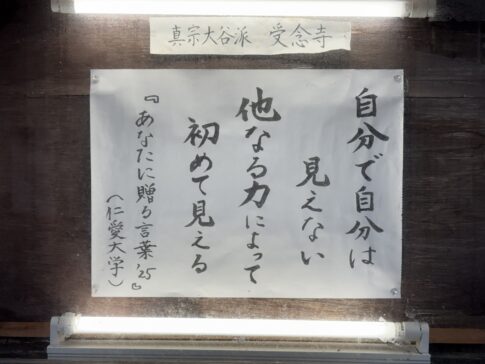 真宗大谷派 受念寺
自分で自分は
見えない
他なる力によって
初めて見える
『あなたに贈る言葉'25』
(仁愛大学)